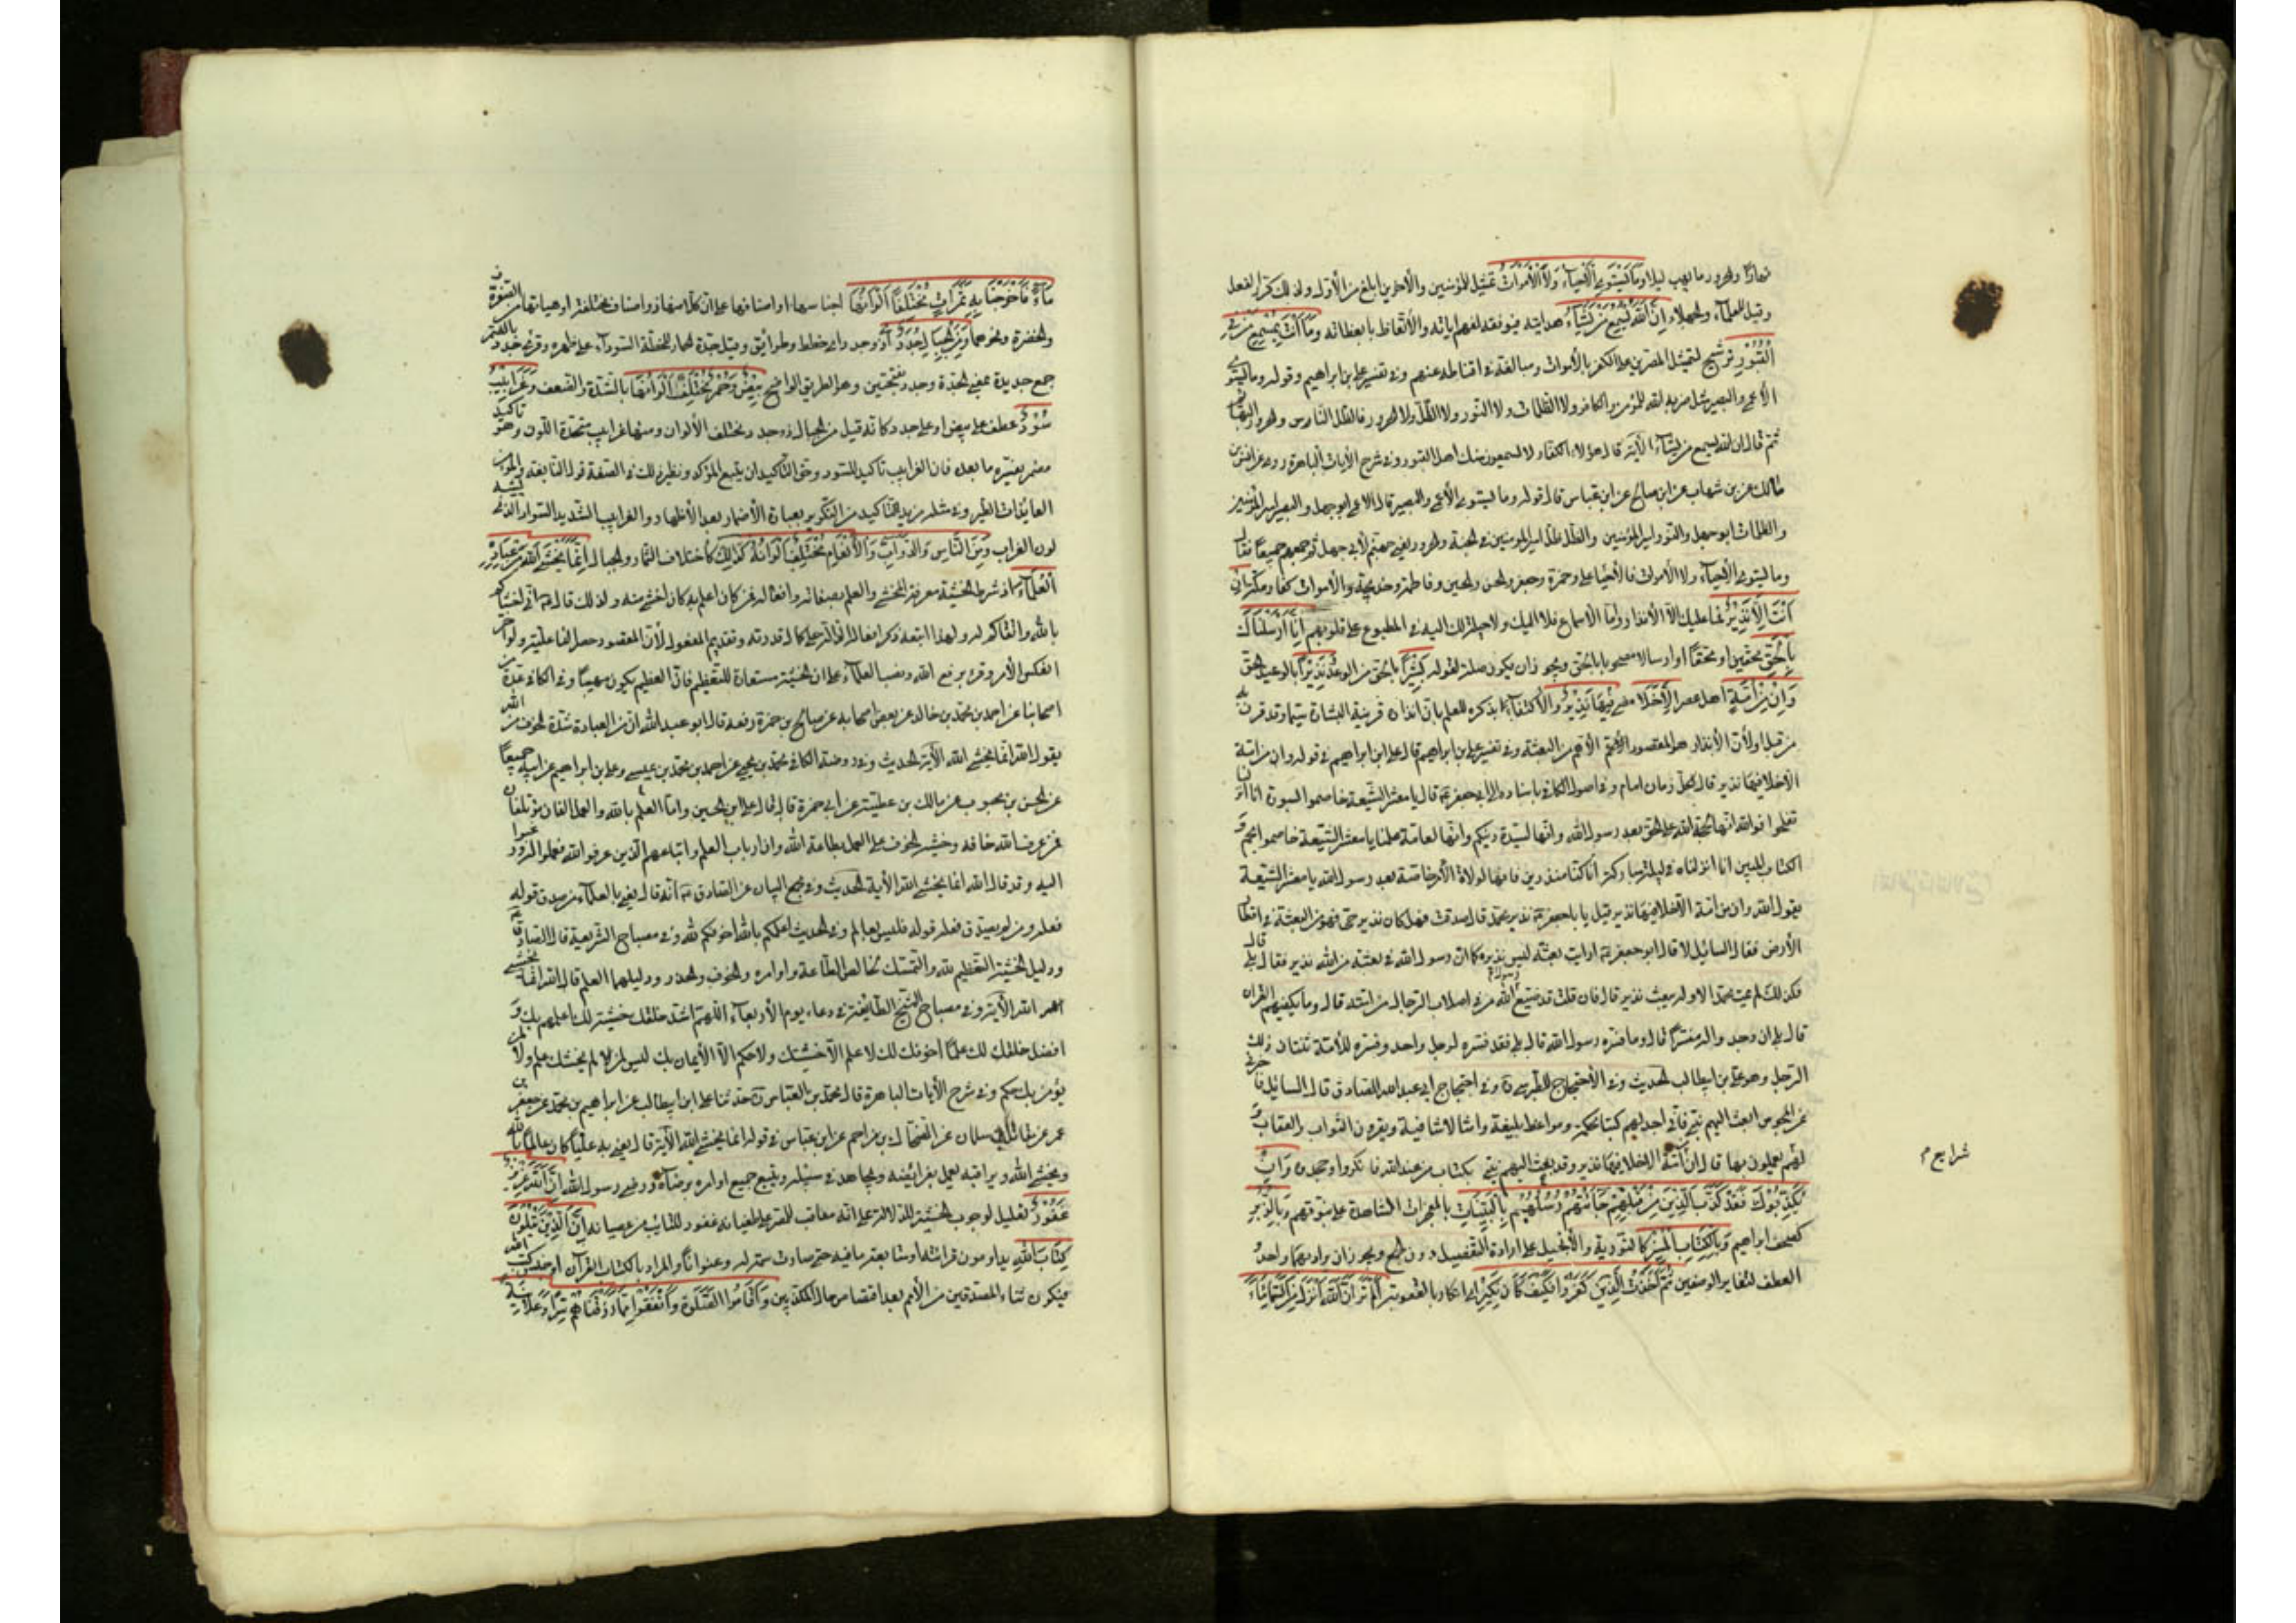 نهارا والحرور ما يهب ليلا وما يستوي الأحياء ولا الأموات تمثيل للمؤمنين والآخرين ابلغ من الأول ولذلك كرر الفعل
وقيل للعلماء والجهلاء ان الله يسمع من يشاء هدايته فيوفقه لفهم اياته والأتعاظ بعظاته وما أنت بمسمع من في
القبور ترشيح لتمثيل المصرين على الكفر بالأموات ومبالغة في اقناطه عنهم وفي تفسير علي بن ابراهيم وقوله وما يستوي
الأعمى والبصير مثل ضربه الله للمؤمن والكافر ولا الظلمات ولا النور ولا الظل ولا الحرور فالظل الناس والحرور البهائم
ثم قال ان الله يسمع من يشاء الآية قال هؤلاء الكفار لا يسمعون منك كاهل القبور وفي شرح الأيات الباهرة روى عن انس بن
مالك عن بن شهاب عن ابي صالح عن ابن عباس قال قوله وما يستوي الأعمى والبصير قال الاعمى ابو جهل والبصير امير المؤمنين
والظلمات ابو جهل والنور امير المؤمنين والظل ظل امير المومنين في الجنة والحرور يعني جهنم لأبي جهل ثم جمعهم جميعا فقال
وما يستوي الأحياء ولا الأموات فالأحياء علي وحمزة وجعفر والحسن والحسين وفاطمة وخديجة والأموات كفار مكة ان
أنت إلا نذير فما عليك الا الأنذار واما الأسماع فلا اليك ولا حيلة لك اليه في المطبوع على قلوبهم إنا أرسلناك
بالحق محقين او محقا او ارسالا مصحوبا بالحق ويجوز ان يكون صلة لقوله بشيرا بالحق من الوعد ونذيرا بالوعيد الحق
وان من أمة اهل عصر إلا خلا مضى فيها نذير والأكتفاء بذكره للعلم بان النذارة قرينة البشارة سيما وقد قرن به
من قبل اولأن الأنذار هو المقصود الأتم الأهم من البعثة وفي تفسير علي بن ابراهيم قال علي ابن ابراهيم في قوله وان من امة
الا خلا فيها نذير قال لكل زمان امام وفي اصول الكافي باسناده الى ابي جعفر ع قال يا معشر الشيعة خاصموا بسورة انا انزلناه
تفلحوا فوالله انها لحجة الله على الخلق بعد رسول الله وانها لسيدة دينكم وانها لغاية علمنا يا معشر الشيعة خاصموا بحم و
الكتاب المبين انا انزلناه في ليلة مباركة انا كنا منذرين فانها لولاة الأمر خاصة بعد رسول الله يا معشر الشيعة
يقول الله وان من امة الا خلا فيها نذير قيل يا با جعفر ع نذيرها محمد قال صدقت فهل كان نذير حي فهو من البعثة في اقطار
الأرض فقال السائل لا قال ابو جعفر ع ارايت بعيثه ليس نذيره كما ان رسول الله في بعثته من الله نذير فقال بلى قال
فكذلك لم يمت محمد الا وله بعيث نذير قال فان قلت لا فقد ضيع رسول الله من في اصلاب الرجال من امته قال وما يكفيهم القرآن
قال بلى ان وجدوا له مفسرا قال وما فسره رسول الله قال بلى قد فسره لرجل واحد وفسر للأمة شأن ذلك
الرجل وهو علي بن ابيطالب الحديث وفي الأحتجاج للطبرسي ره وفي احتجاج ابي عبد الله الصادق قال السائل فاخبرني
عن المجوس ابعث اليهم نبي فاني اجد لهم كتبا محكمة ومواعظ بليغة وامثالا شافية ويقرون بالثواب والعقاب و
لهم شرايع يعملون بها قال ان من أمة الا خلا فيها نذير وقد بعث اليهم نبي بكتاب من عند الله فانكروا وجحدوه وان
يكذبوك فقد كذب الذين من قبلهم جاءتهم رسلهم بالبينات بالمعجزات الشاهدة على نبوتهم وبالزبر
كصحف ابراهيم وبالكتاب المنير كالتورية والأنجيل على ارادة التفصيل دون الجمع ويجوز ان يراد بهما واحد و
العطف لتغاير الوصفين ثم أخذت الذين كفروا فكيف كان نكير اي انكاري بالعقوبة ألم تر أن الله أنزل من السماء
شرايع م
ماء فأخرجنا به ثمرات مختلفا ألوانها اجناسها او اصنافها على ان كلا منها ذو اصناف مختلفة او هيئاتها من الصفرة
والخضرة ونحوهما ومن الجبال جدد أي ذو جدد اي خطط وطرائق ويقال جدة الحمار للخطة السوداء على ظهره وقرئ جدد بالضم
جمع جديدة بمعنى الجدة وجدد بفتحتين وهو الطريق الواضح بيض وحمر مختلف ألوانها بالشدة والضعف وغرابيب
سود عطف على بيض او على جدد كانه قيل من الجبال ذو جدد مختلف الألوان ومنها غرابيب متحدة اللون وهو تاكيد
مضمر يفسره ما بعده فان الغرابيب تاكيد للسود وحق التأكيد ان يتبع المؤكد ونظير ذلك في الصفة قول النابغة والمؤمن
العائذات الطير وفي مثله مزيد التاكيد من التكرير بعبارة الأضمار بعد الأظهار والغرابيب الشديد السواد الذي يشبه
لون الغراب ومن الناس والدواب والأنعام مختلف ألوانه كذلك كاختلاف الثمار والجبال إنما يخشى الله من عباده
العلماء اذ شرط الخشية معرفة المخشي والعلم بصفاته وافعاله فمن كان اعلم به كان اخشى منه ولذلك قال ع اني اخشاكم
بالله واتقاكم له ولهذا اتبعه ذكر افعاله الدالة على كمال قدرته وتقديم المفعول لأن المقصود حصر الفاعلية ولو اخر
انعكس الأمر وقرئ برفع الله ونصب العلماء على ان الخشية مستعارة للتعظيم فان العظيم يكون مهيبا وفي الكافي عدة من
اصحابنا عن احمد بن محمد بن خالد عن بعض اصحابه عن صالح بن حمزة رفعه قال ابو عبد الله ان من العبادة شدة الخوف من الله
يقول الله انما يخشى الله الآية الحديث وفي روضة الكافي محمد بن يحيى عن احمد بن محمد بن عيسى وعلي بن ابراهيم عن ابيه جميعا
عن الحسن بن محبوب عن مالك بن عطية عن ابي حمزة قال قال علي ابن الحسين وما العلم بالله والعمل الا الفان مؤتلفان
فمن عرف الله خافه وحثه الخوف على العمل بطاعة الله وان ارباب العلم واتباعهم الذين عرفوا الله فعملوا له ورغبوا
اليه وقد قال الله انما يخشى الله الأية الحديث وفي مجمع البيان عن الصادق ع انه قال يعني بالعلماء من صدق قوله
فعله ومن لم يصدق فعله قوله فليس بعالم وفي الحديث اعلمكم بالله اخوفكم لله وفي مصباح الشريعة قال الصادق ع
ودليل الخشية التعظيم لله والتمسك بخالص الطاعة واوامره والخوف والحذر ودليلهما العلم قال الله انما يخشى
الله الآية وفي مصباح الشيخ الطائفة في دعاء يوم الأربعاء اللهم اشد خلقك خشية لك اعلمهم بك و
افضل خلقك لك علما اخوفهم لك لا علم الا خشيتك ولا حكم الا الأيمان بك ليس لمن لم يخشك علم ولا لمن لم
يؤمن بك حكم وفي شرح الأيات الباهرة قال محمد بن العباس ره حدثنا علي ابن ابيطالب عن ابراهيم بن محمد عن جعفر بن
عمر عن مقاتل بن سليمان عن الضحاك بن مزاحم عن ابن عباس في قوله انما يخشى الله الآية قال يعني به عليا كان عالما بالله
ويخشى الله ويراقبه ويعمل بفرائضه ويجاهد في سبيله ويتبع جميع اوامره برضائه ورضى رسول الله ان الله عزيز
غفور تعليل لوجوب الخشية للدلالة على انه معاقب للمصر على طغيانه غفور للتائب من عصيانه إن الذين يتلون
كتاب الله يداومون قرائته او متابعة ما فيه حتى صارت سمة لهم وعنوانا والمراد بالكتاب القرآن او جنس كتب الله
فيكون ثناء على المصدقين من الأمم بعد اقتصاص حال المكذبين وأقاموا الصلوة وأنفقوا مما رزقناهم سرا وعلانية